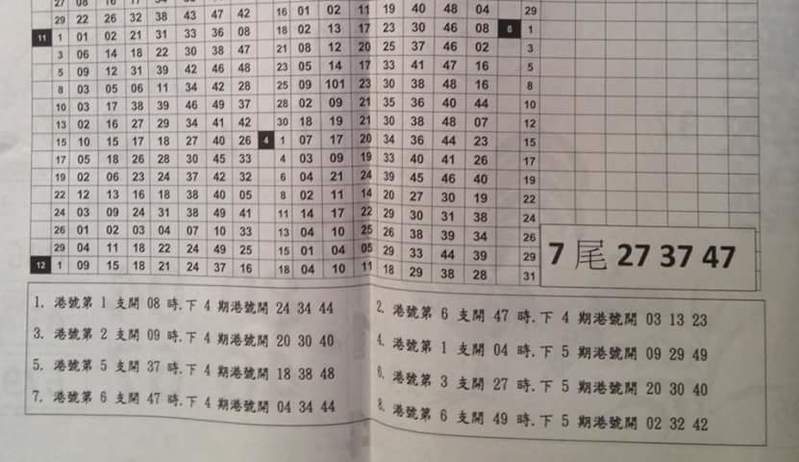 29 22 26 32 38 43 47 42 16 01 02 11 19 40 48 04 29
11 1 01 02 21 31 33 36 08 18 02 13 17 23 30 46 08 6 1
3 06 14 18 22 30 38 47 21 08 12 20 25 37 46 02 3
5 09 12 31 39 42 46 48 23 05 14 17 33 41 47 16 5
8 03 05 06 11 34 42 28 25 09 101 23 30 38 48 16 8
10 03 17 38 39 46 49 37 28 02 09 21 35 36 40 44 10
13 02 16 27 29 34 41 42 30 18 19 21 30 38 48 07 12
15 10 15 17 18 27 40 26 4 1 07 17 20 34 36 44 23 15
17 05 18 26 28 30 45 33 4 03 09 19 33 40 41 26 17
19 02 06 23 24 37 42 32 6 04 21 24 39 45 46 40 19
22 12 13 16 18 38 40 05 8 02 11 14 20 27 30 19 22
24 03 09 24 31 38 49 41 11 14 17 22 29 30 31 38 24
26 01 02 03 04 07 10 33 13 04 10 25 26 38 39 34 26
29 04 11 18 22 24 49 25 15 01 04 05 29 33 44 39 29
12 1 09 15 18 21 24 37 16 18 04 10 11 18 29 38 28 31
7 尾 27 37 47
1. 港號第 1 支開 08 時.下 4 期港號開 24 34 44
2. 港號第 6 支開 47 時.下 4 期港號開 03 13 23
3. 港號第 2 支開 09 時.下 4 期港號開 20 30 40
4. 港號第 1 支開 04 時.下 5 期港號開 09 29 49
5. 港號第 5 支開 37 時.下 4 期港號開 18 38 48
6. 港號第 3 支開 27 時.下 5 期港號開 20 30 40
7. 港號第 6 支開 47 時.下 4 期港號開 04 34 44
8. 港號第 6 支開 49 時.下 5 期港號開 02 32 42